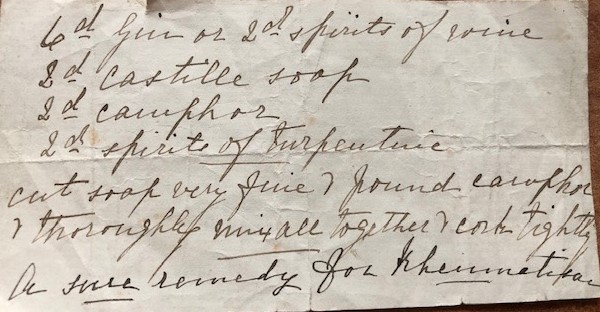 6d Gin or 2d spirits of wine
2d castille soap
2d camphor
2d spirits of Turpentine
cut soap very fine & pound camphor
& thoroughly mix all together & cork tightly
A sure remedy for Rheumatism